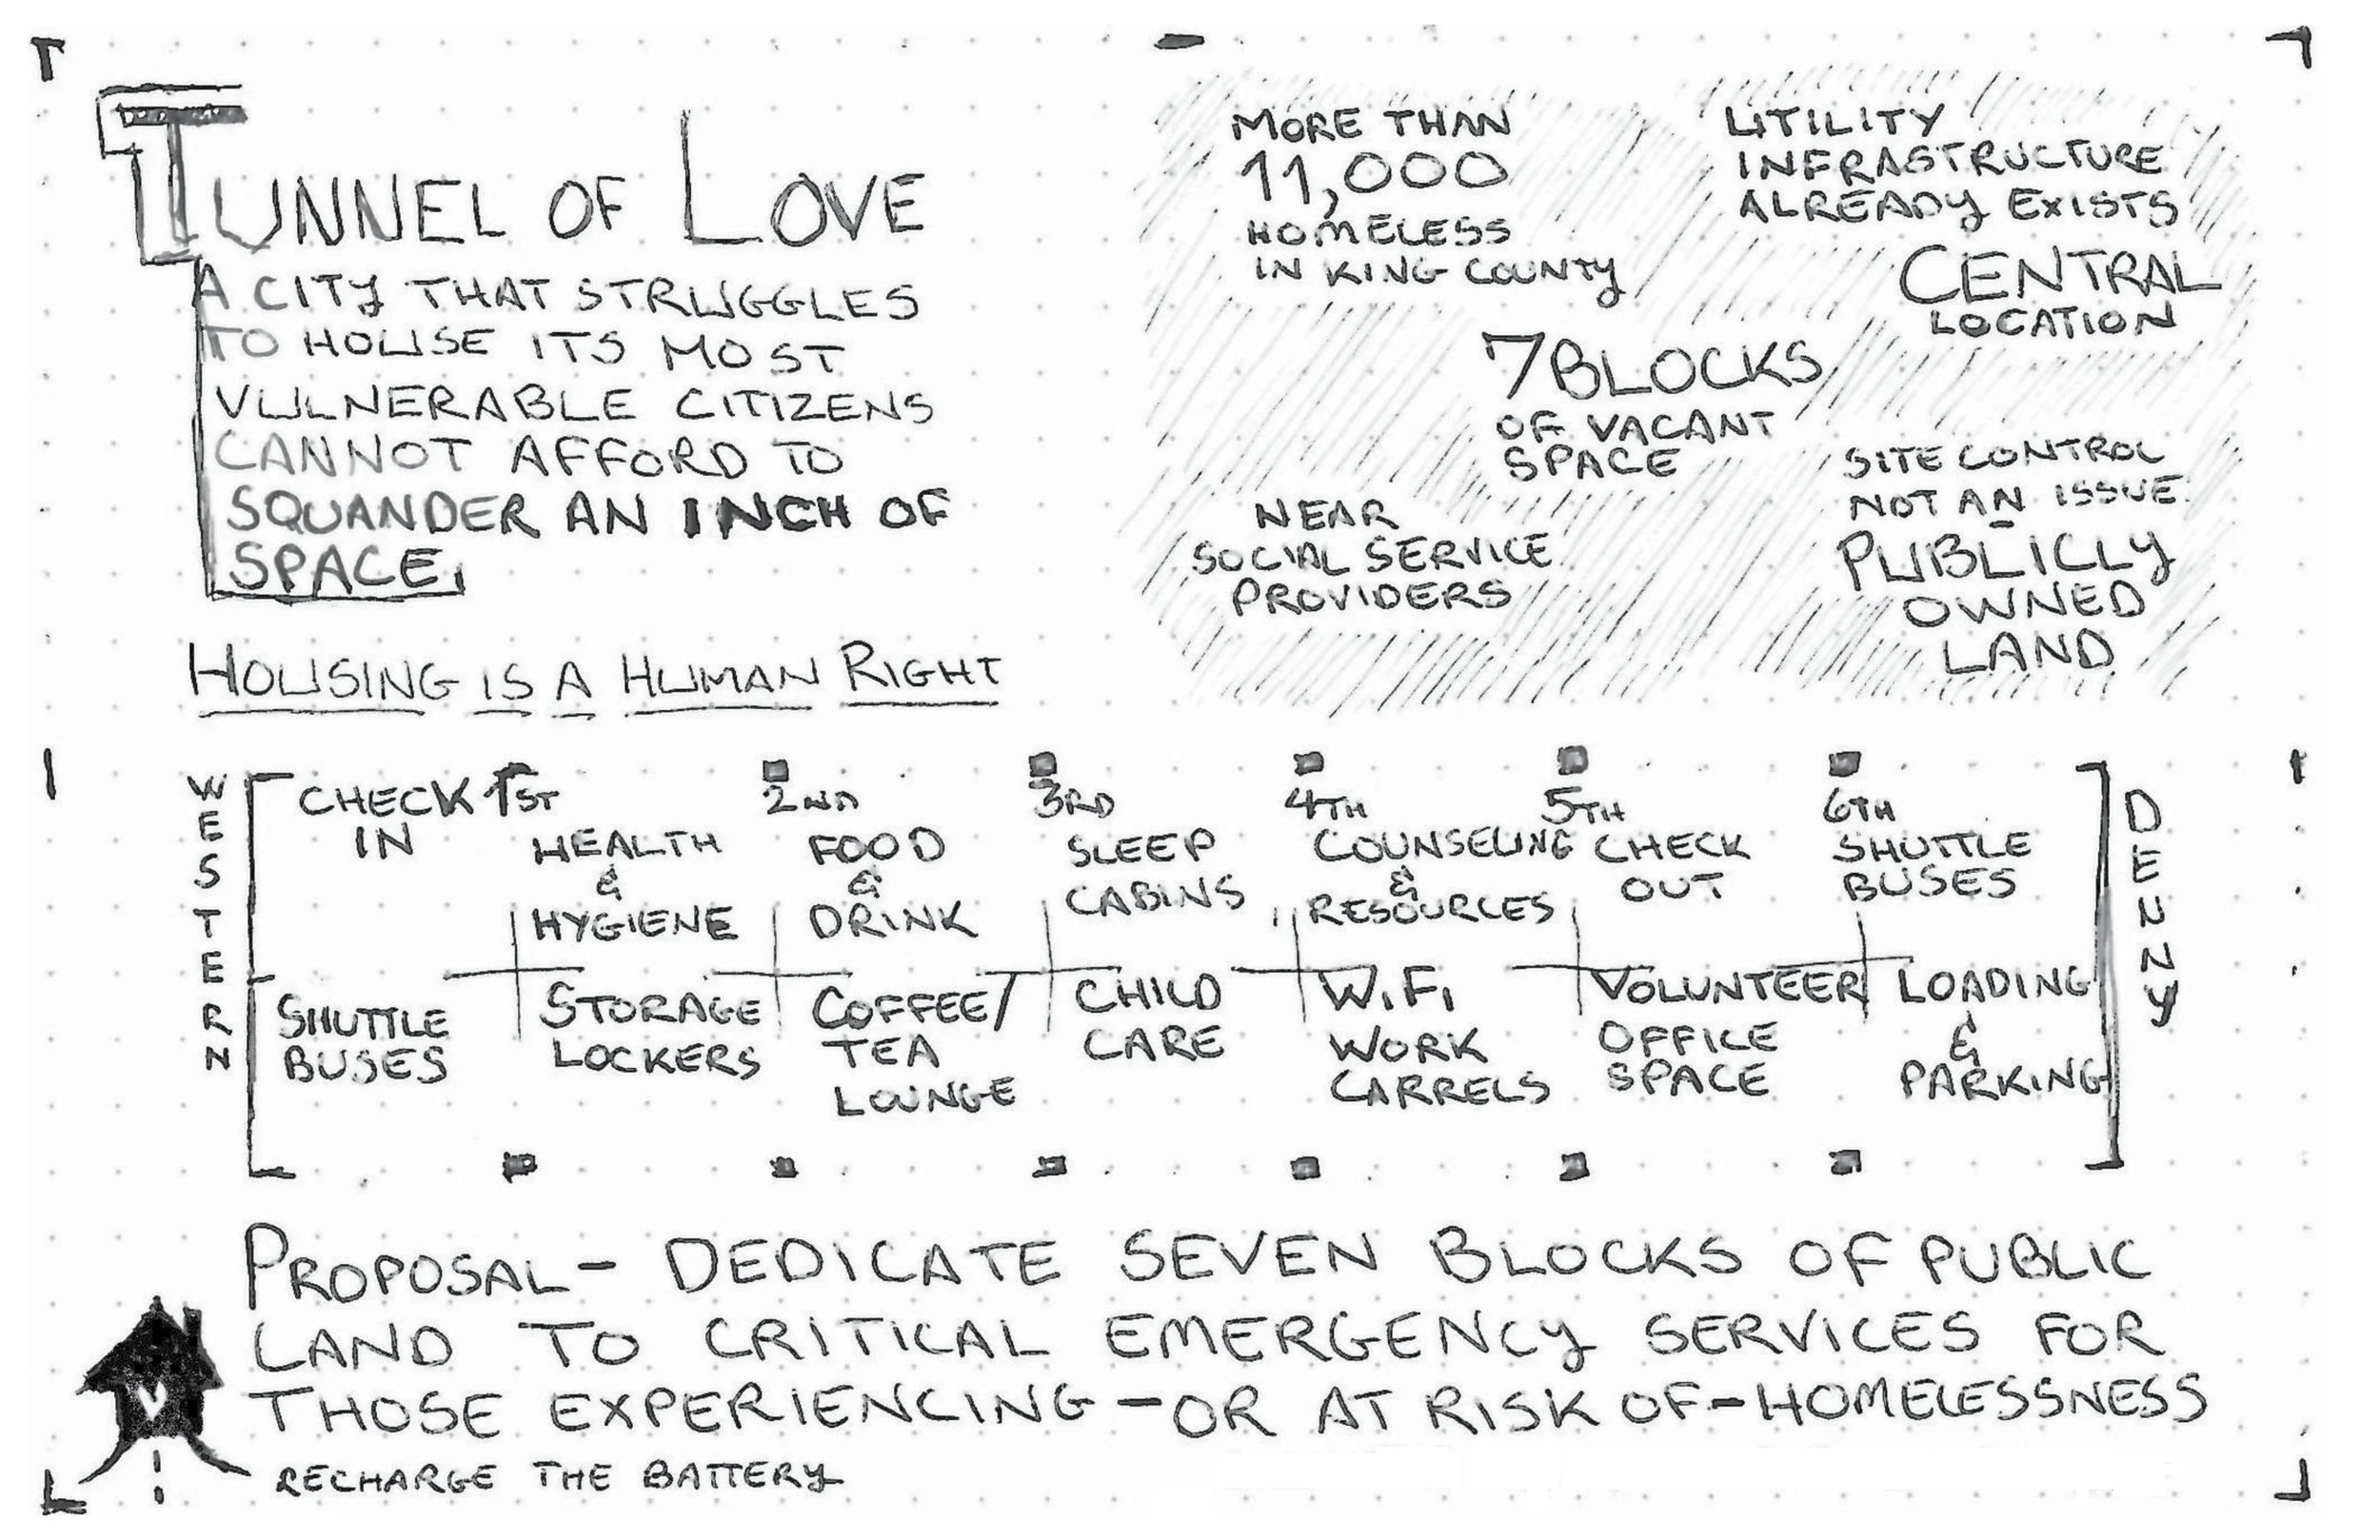 TUNNEL OF LOVE
A CITY THAT STRUGGLES
TO HOUSE ITS MOST
VULNERABLE CITIZENS
CANNOT AFFORD TO
SQUANDER AN INCH OF
SPACE.
HOUSING IS A HUMAN RIGHT
MORE THAN
11,000
HOMELESS
IN KING COUNTY
UTILITY
INFRASTRUCTURE
ALREADY EXISTS
CENTRAL
LOCATION
7 BLOCKS
OF VACANT
SPACE
NEAR
SOCIAL SERVICE
PROVIDERS
SITE CONTROL
NOT AN ISSUE
-
PUBLICLY
OWNED
LAND
WESTERN
CHECK
IN
1ST
HEALTH
&
HYGIENE
2ND
FOOD
&
DRINK
3RD
SLEEP
CABINS
4TH
COUNSELING
&
RESOURCES
5TH
CHECK
OUT
6TH
SHUTTLE
BUSES
DENNY
SHUTTLE
BUSES
STORAGE
LOCKERS
COFFEE/
TEA
LOUNGE
CHILD
CARE
WIFI
WORK
CARRELS
VOLUNTEER
OFFICE
SPACE
LOADING
&
PARKING
PROPOSAL- DEDICATE SEVEN BLOCKS OF PUBLIC
LAND TO CRITICAL EMERGENCY SERVICES FOR
THOSE EXPERIENCING -OR AT RISK OF- HOMELESSNESS
RECHARGE THE BATTERY